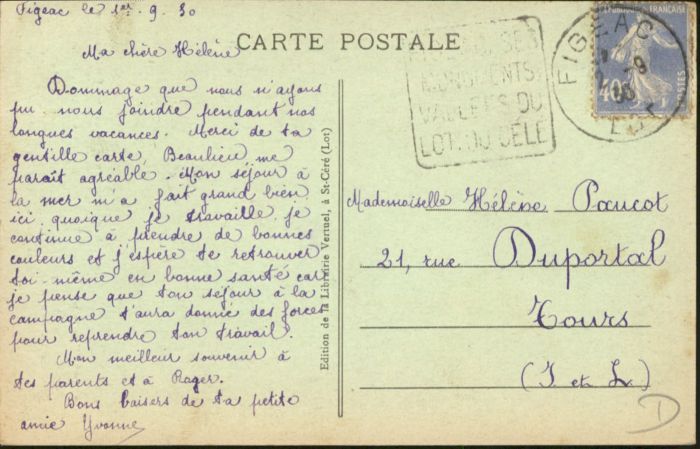 Figeac le 1er. 9. 30
Ma chère Hélène
Dommage que nous n'ayons
pu nous joindre pendant nos
longues vacances. Merci de ta
gentille carte, Beaulieu me
paraît agréable. Mon séjour à
la mer m'a fait grand bien
ici, quoique je travaille, je
continue à prendre de bonnes
couleurs et j'espère te retrouver
toi-même en bonne santé car
je pense que ton séjour à la
campagne t'aura donné des forces
pour reprendre ton travail.
Mon meilleur souvenir à
tes parents et à Roger.
Bons baisers de ta petite
amie Yvonne
CARTE POSTALE
Edition de la Librairie Vertuel, à St-Céré (Lot)
SES
MONUMENTS
VALLÉES DU
LOT DU CÉLÉ
FIGEAC
LOT
FRANÇAISE
POSTES
40c
Mademoiselle Hélène Paucot
21, rue Duportal
Tours
(I et L)
D